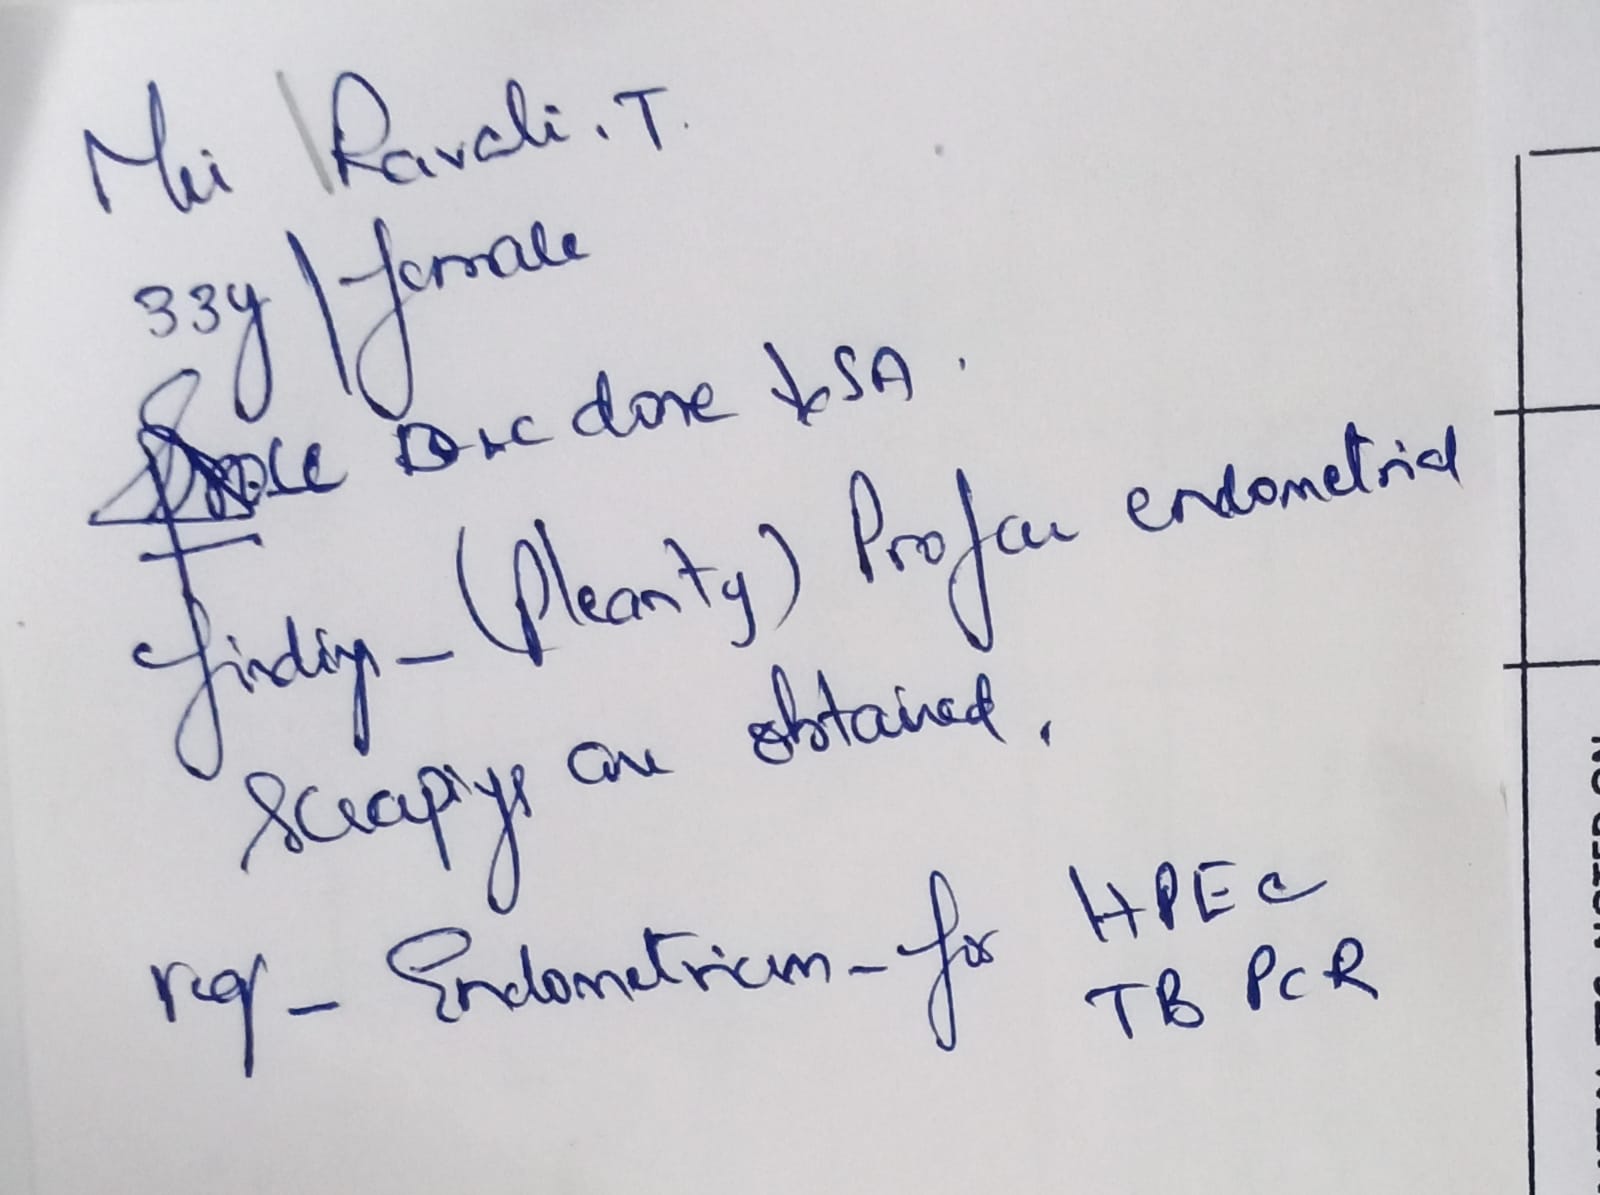 Ravali. T.
33y / female
D&C done ↓ SA.
findings - (pleanty) Profuse endometrial
scrapings are obtained.
req - Endometrium - for HPE c
TB PCR
NOTED ON